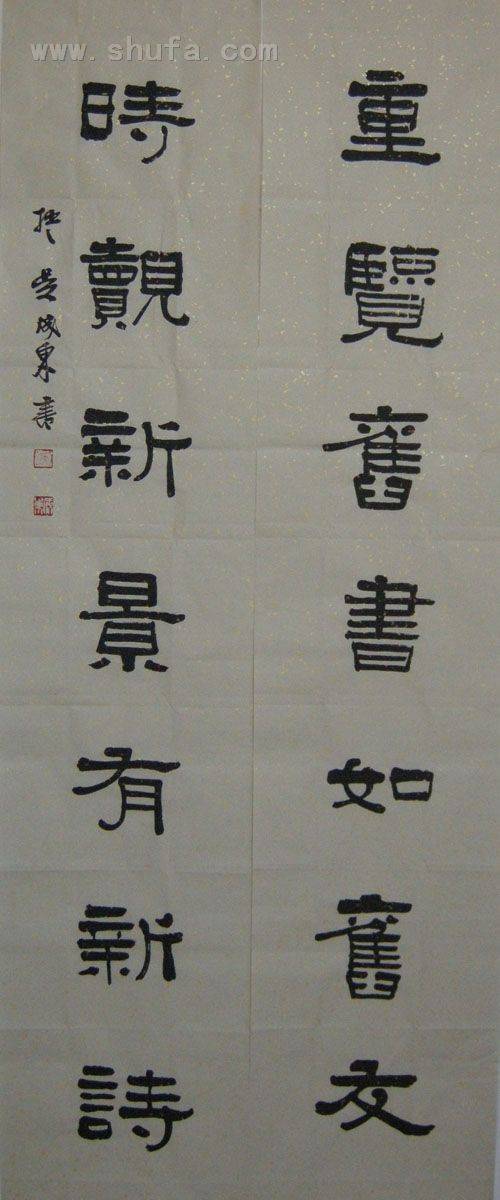 www.shufa.com
重覽舊書如舊友
時覿新景有新詩
成泉書